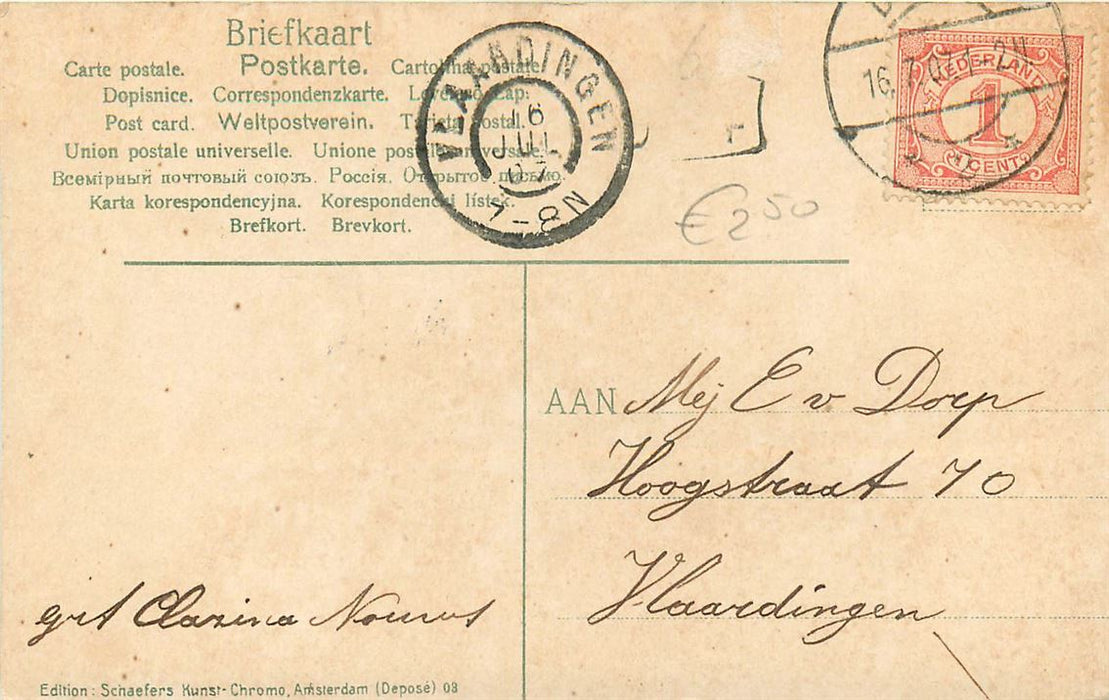 Briefkaart
Carte postale. Postkarte. Cartolina postale.
Dopisnice. Correspondenzkarte. Levelező Lap.
Post card. Weltpostverein. Tarjeta postal.
Union postale universelle. Unione postale universale.
Всемірный почтовый союзъ. Россія. Открытое письмо.
Karta korespondencyjna. Korespondenční lístek.
Brefkort. Brevkort.
VLAARDINGEN
16
JUL
07
7-8N
16.7.07
NEDERLAND
1
CENT
€ 2 50
AAN Mej E v Dorp
Hoogstraat 70
Vlaardingen
grt Clazina
Edition: Schaefers Kunst-Chromo, Amsterdam (Deposé) 08